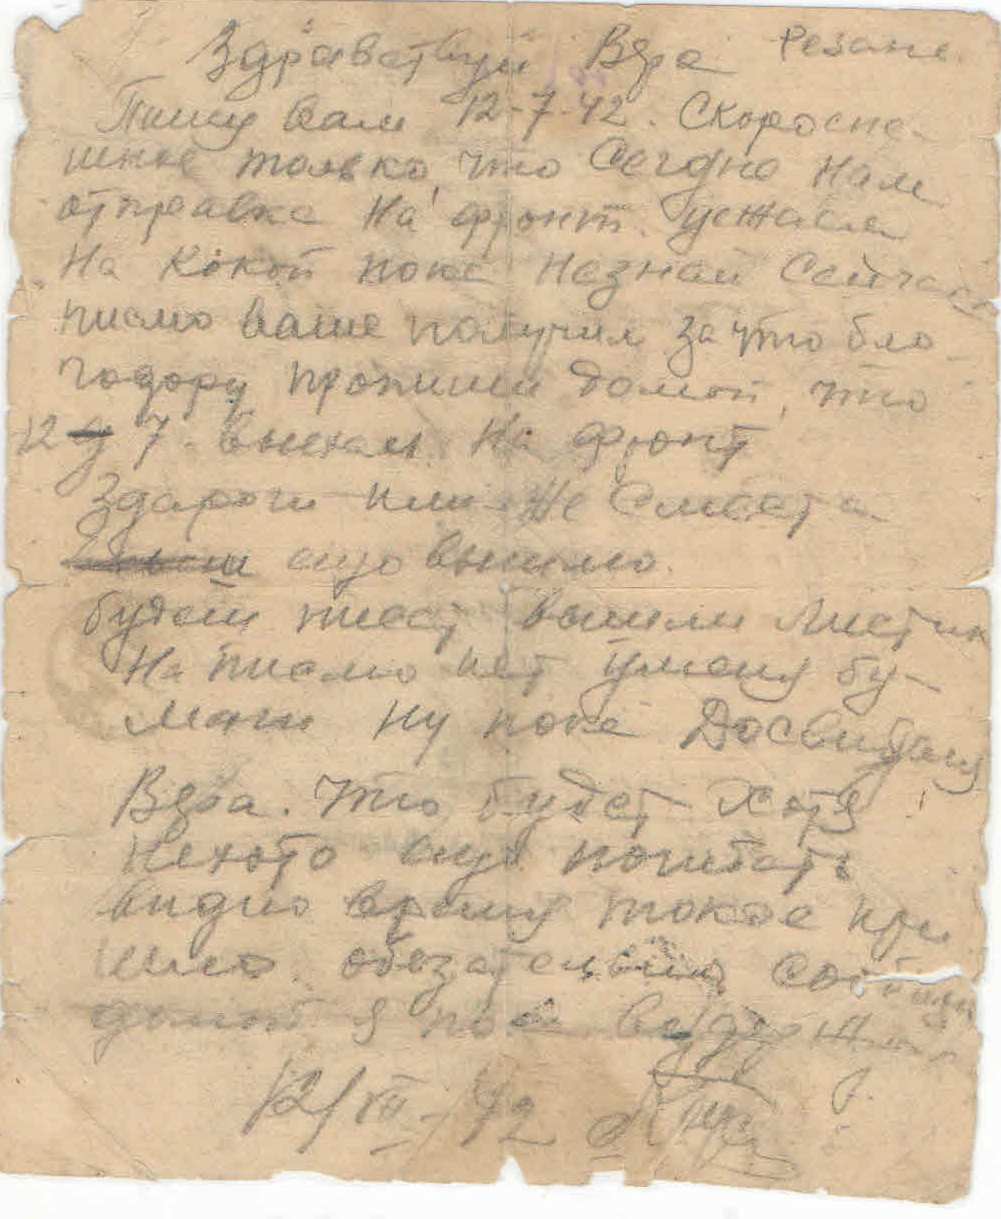 Здравствуй Вера Резане
Пишу вам 12-7-42. Скоросне-
шное только, что Сегдне нам
отправка на фронт. уежаем
На Кокой пока незнаю Сейчас
писмо ваше получил за что бло-
годору пропиши домой, что
12 7. выехал На фронт
Здароги или же Сместа
ещо вышлю.
будеш писат вышли Листик
На писмо нет уменя бу-
маги Ну пока Досвиданя
Вера. что будет Хотя
Нехото ещо погибать
видно время токое при
шло. обезательно сообщи
домой я пока
12/VII-42